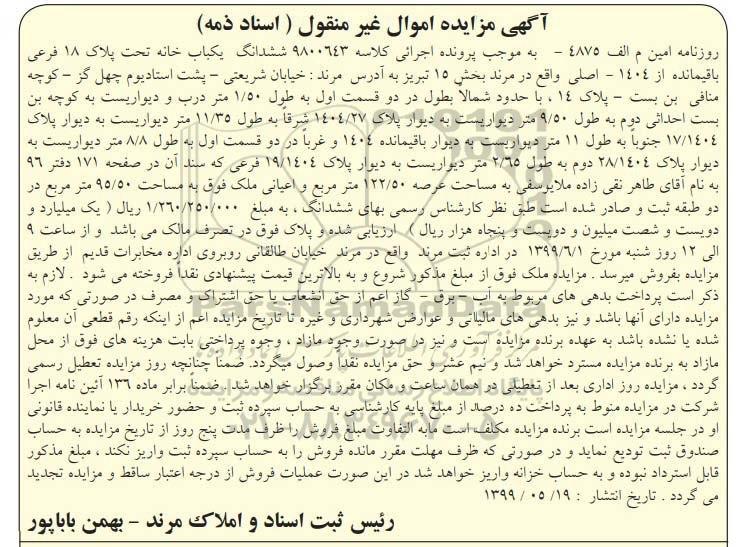 آگهی مزایده اموال غیر منقول ( اسناد ذمه)
روزنامه امین م الف ۴۸۷۵ – به موجب پرونده اجرائی کلاسه ۹۸۰۰۶۴۳ ششدانگ یکباب خانه تحت پلاک ۱۸ فرعی
باقیمانده از ۱۴۰۴ – اصلی واقع در مرند بخش ۱۵ تبریز به آدرس مرند : خیابان شریعتی – پشت استادیوم چهل گز – کوچه
منافی بن بست – پلاک ۱۴ ، با حدود شمالاً بطول در دو قسمت اول به طول ۱/۵۰ متر درب و دیواریست به کوچه بن
بست احداثی دوم به طول ۹/۵۰ متر دیواریست به دیوار پلاک ۱۴۰۴/۲۷ شرقاً به طول ۱۱/۳۵ متر دیواریست به دیوار پلاک
۱۷/۱۴۰۴ جنوباً به طول ۱۱ متر دیواریست به دیوار باقیمانده ۱۴۰۴ و غرباً در دو قسمت اول به طول ۸/۸ متر دیواریست به
دیوار پلاک ۲۸/۱۴۰۴ دوم به طول ۲/۶۵ متر دیواریست به دیوار پلاک ۱۹/۱۴۰۴ فرعی که سند آن در صفحه ۱۷۱ دفتر ۹۶
به نام آقای طاهر نقی زاده ملایوسفی به مساحت عرصه ۱۲۲/۵۰ متر مربع و اعیانی ملک فوق به مساحت ۹۵/۵۰ متر مربع در
دو طبقه ثبت و صادر شده است طبق نظر کارشناس رسمی بهای ششدانگ ، به مبلغ ۱/۲۶۰/۲۵۰/۰۰۰ ریال ( یک میلیارد و
دویست و شصت میلیون و دویست و پنجاه هزار ریال ) ارزیابی شده و پلاک فوق در تصرف مالک می باشد و از ساعت ۹
الی ۱۲ روز شنبه مورخ ۱۳۹۹/۶/۱ در اداره ثبت مرند واقع در مرند خیابان طالقانی روبروی اداره مخابرات قدیم از طریق
مزایده بفروش میرسد . مزایده ملک فوق از مبلغ مذکور شروع و به بالاترین قیمت پیشنهادی نقداً فروخته می شود . لازم به
ذکر است پرداخت بدهی های مربوط به آب – برق – گاز اعم از حق انشعاب یا حق اشتراک و مصرف در صورتی که مورد
مزایده دارای آنها باشد و نیز بدهی های مالیاتی و عوارض شهرداری و غیره تا تاریخ مزایده اعم از اینکه رقم قطعی آن معلوم
شده یا نشده باشد به عهده برنده مزایده است و نیز در صورت وجود مازاد ، وجوه پرداختی بابت هزینه های فوق از محل
مازاد به برنده مزایده مسترد خواهد شد و نیم عشر و حق مزایده نقداً وصول میگردد. ضمناً چنانچه روز مزایده تعطیل رسمی
گردد ، مزایده روز اداری بعد از تعطیلی در همان ساعت و مکان مقرر برگزار خواهد شد. ضمناً برابر ماده ۱۳۶ آئین نامه اجرا
شرکت در مزایده منوط به پرداخت ده درصد از مبلغ پایه کارشناسی به حساب سپرده ثبت و حضور خریدار یا نماینده قانونی
او در جلسه مزایده است برنده مزایده مکلف است مابه التفاوت مبلغ فروش را ظرف مدت پنج روز از تاریخ مزایده به حساب
صندوق ثبت تودیع نماید و در صورتی که ظرف مهلت مقرر مانده فروش را به حساب سپرده ثبت واریز نکند ، مبلغ مذکور
قابل استرداد نبوده و به حساب خزانه واریز خواهد شد در این صورت عملیات فروش از درجه اعتبار ساقط و مزایده تجدید
می گردد . تاریخ انتشار : ۱۹/ ۰۵ / ۱۳۹۹
رئیس ثبت اسناد و املاک مرند – بهمن باباپور
ParsNamadData